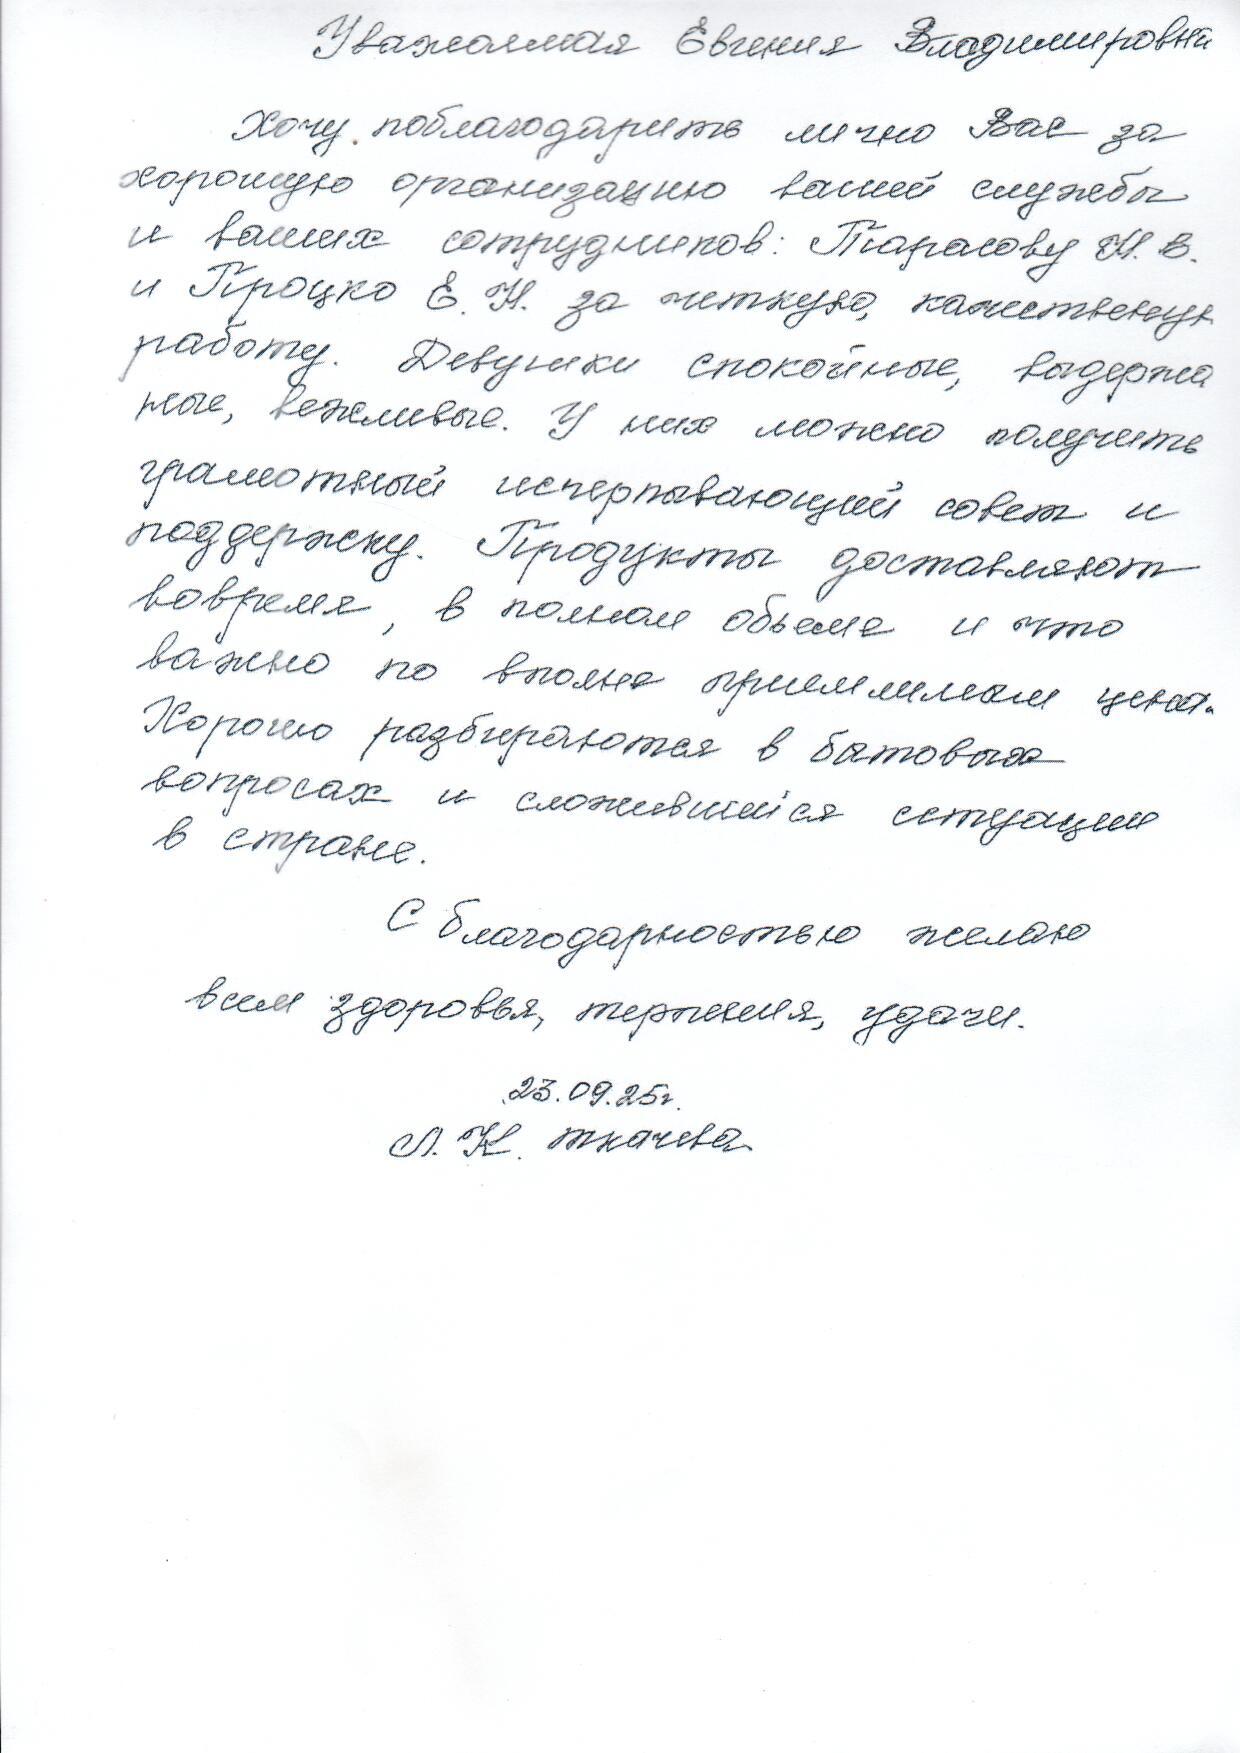 Уважаемая Евгения Владимировна
Хочу поблагодарить лично Вас за
хорошую организацию вашей службы
и ваших сотрудников: Тарасову Н. В.
и Процко Е. Н. за четкую, качественную
работу. Девушки спокойные, выдержа
ные, вежливые. У них можно получить
грамотный исчерпывающий совет и
поддержку. Продукты доставляют
вовремя, в полном обьеме и что
важно по вполне приемлимым ценам.
Хорошо разбираются в бытовых
вопросах и сложившийся ситуации
в стране.
С благодарностью желаю
всем здоровья, терпения, удачи.
23.09.25г.
Л. К. Ткачева